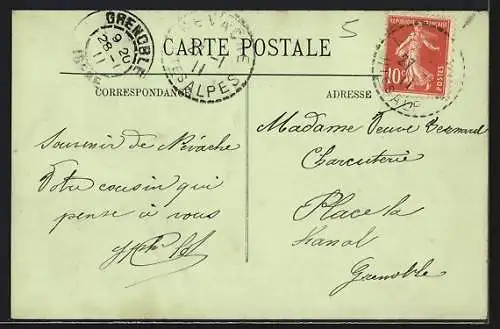 GRENOBLE
9 20
28 -1
11
ISERE
NEVACHE
-1
11
TES ALPES
5
CARTE POSTALE
REPUBLIQUE FRANÇAISE
10c
POSTES
CORRESPONDANCE
ADRESSE
Souvenir de Névache
Votre cousin qui
pense à vous
Madame Veuve
Charcuterie
Place la
Grenoble